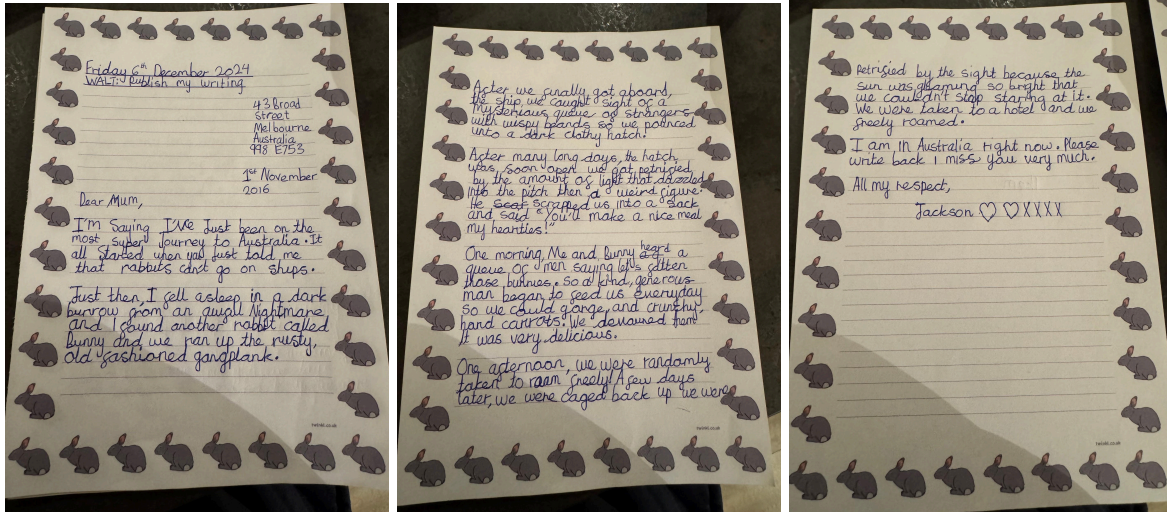 Friday 6th December 2024
WALT: Publish my writing
43 Broad
street
Melbourne
Australia
998 E753
1st November
2016
Dear Mum,
I'm Saying I've Just been on the
most super Journey to Australia. It
all started when you just told me
that rabbits can't go on ships.
Just then, I fell asleep in a dark
burrow from an awful Nightmare
and I found another rabbit called
Bunny and we ran up the rusty,
old fashioned gangplank.
twinkl.co.uk
After we finally got aboard,
the ship, we caught sight of a
Mysterious queue of strangers
with wispy beards so we pounced
into a dark clothy hatch.
After many long days, the hatch
was soon open we got petrified
by the amount of light that dazzled
into the pitch then a weird figure.
He Scar scrapped us into a sack
and said "You'll make a nice meal
my hearties!"
One morning, Me and Bunny heard a
queue of men saying let's fatten
those bunnies. So a kind, generous
man began to feed us everyday
so we could gorge, and crunchy,
hard carrots. We devoured them
It was very delicious.
One afternoon, we were randomly
taken to roam freely! A few days
later, we were caged back up we were
twinkl.co.uk
Petrified by the sight because the
sun was gleaming so bright that
we couldn't stop staring at it.
We were taken to a hotel and we
freely roamed.
I am in Australia right now. Please
write back I miss you very much.
All my respect,
Jackson ♡ ♡ XXXX
twinkl.co.uk